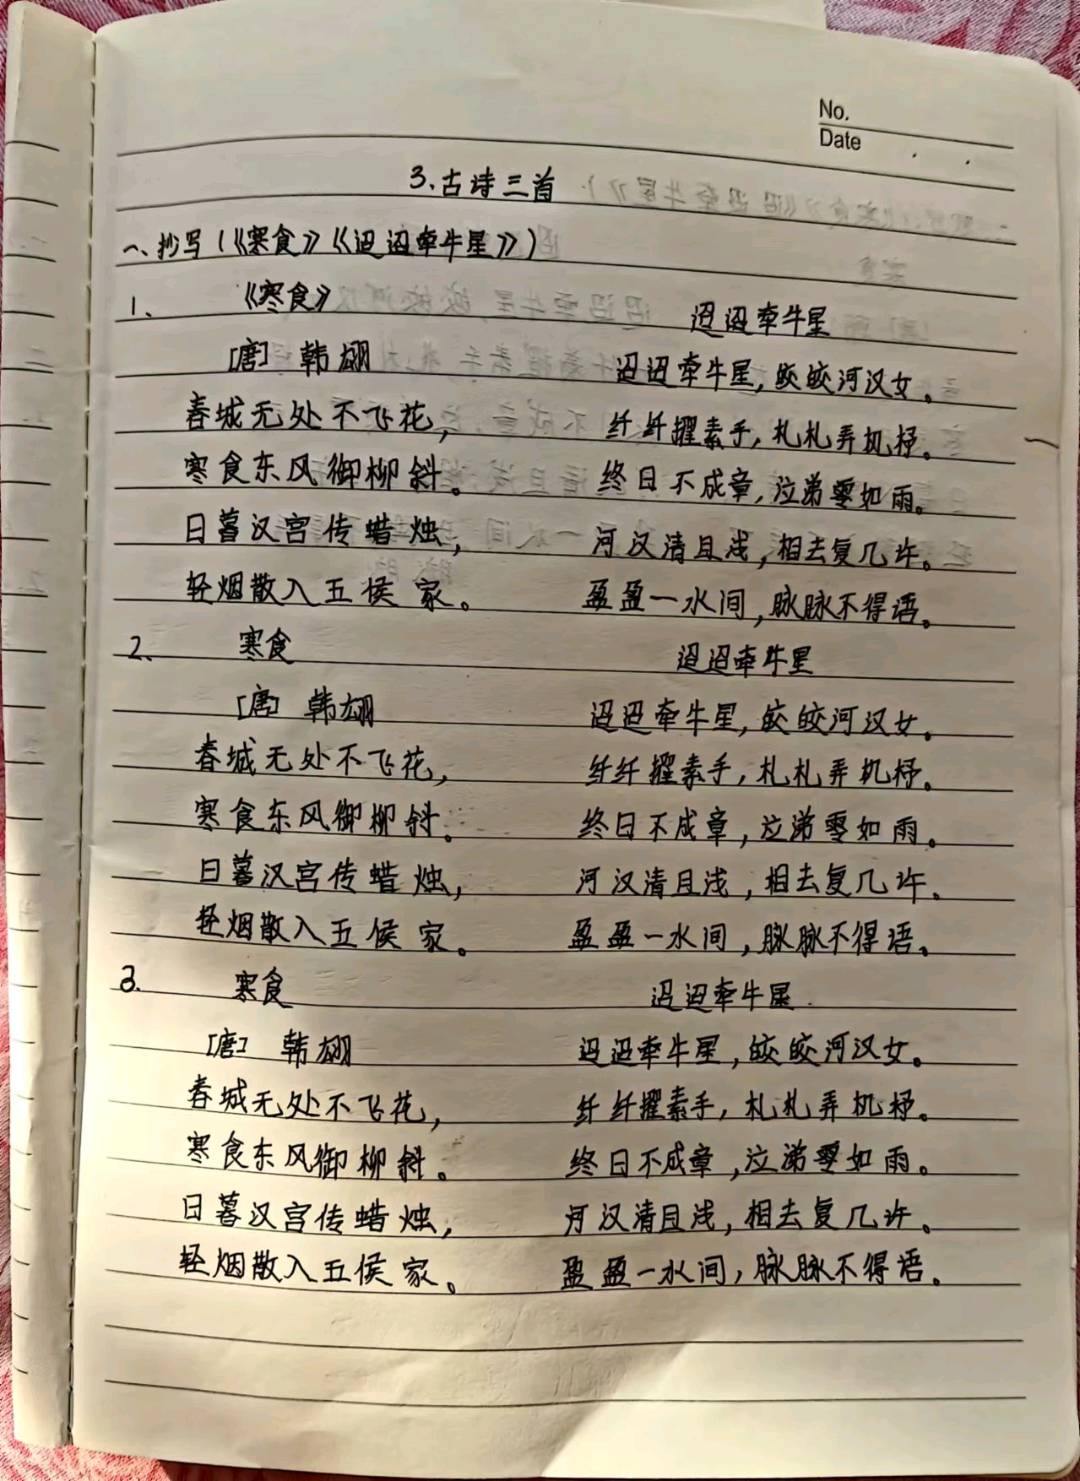 No.
Date
3.古诗三首
一、抄写(《寒食》《迢迢牵牛星》)
1、 《寒食》
[唐] 韩翃
春城无处不飞花,
寒食东风御柳斜。
日暮汉宫传蜡烛,
轻烟散入五侯家。
迢迢牵牛星
迢迢牵牛星,皎皎河汉女。
纤纤擢素手,札札弄机杼。
终日不成章,泣涕零如雨。
河汉清且浅,相去复几许。
盈盈一水间,脉脉不得语。
2、 寒食
[唐] 韩翃
春城无处不飞花,
寒食东风御柳斜。
日暮汉宫传蜡烛,
轻烟散入五侯家。
迢迢牵牛星
迢迢牵牛星,皎皎河汉女。
纤纤擢素手,札札弄机杼。
终日不成章,泣涕零如雨。
河汉清且浅,相去复几许。
盈盈一水间,脉脉不得语。
3. 寒食
[唐] 韩翃
春城无处不飞花,
寒食东风御柳斜。
日暮汉宫传蜡烛,
轻烟散入五侯家。
迢迢牵牛星
迢迢牵牛星,皎皎河汉女。
纤纤擢素手,札札弄机杼。
终日不成章,泣涕零如雨。
河汉清且浅,相去复几许。
盈盈一水间,脉脉不得语。